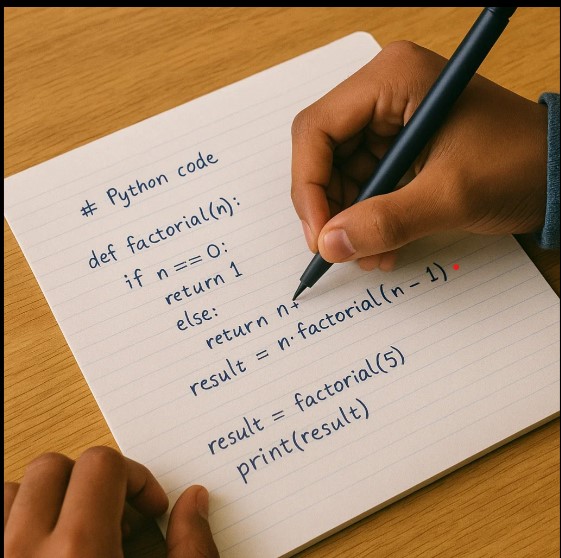 # Python code
def factorial(n):
if n == 0:
return 1
else:
return n+
result = n·factorial(n - 1)
result = factorial(5)
print(result)